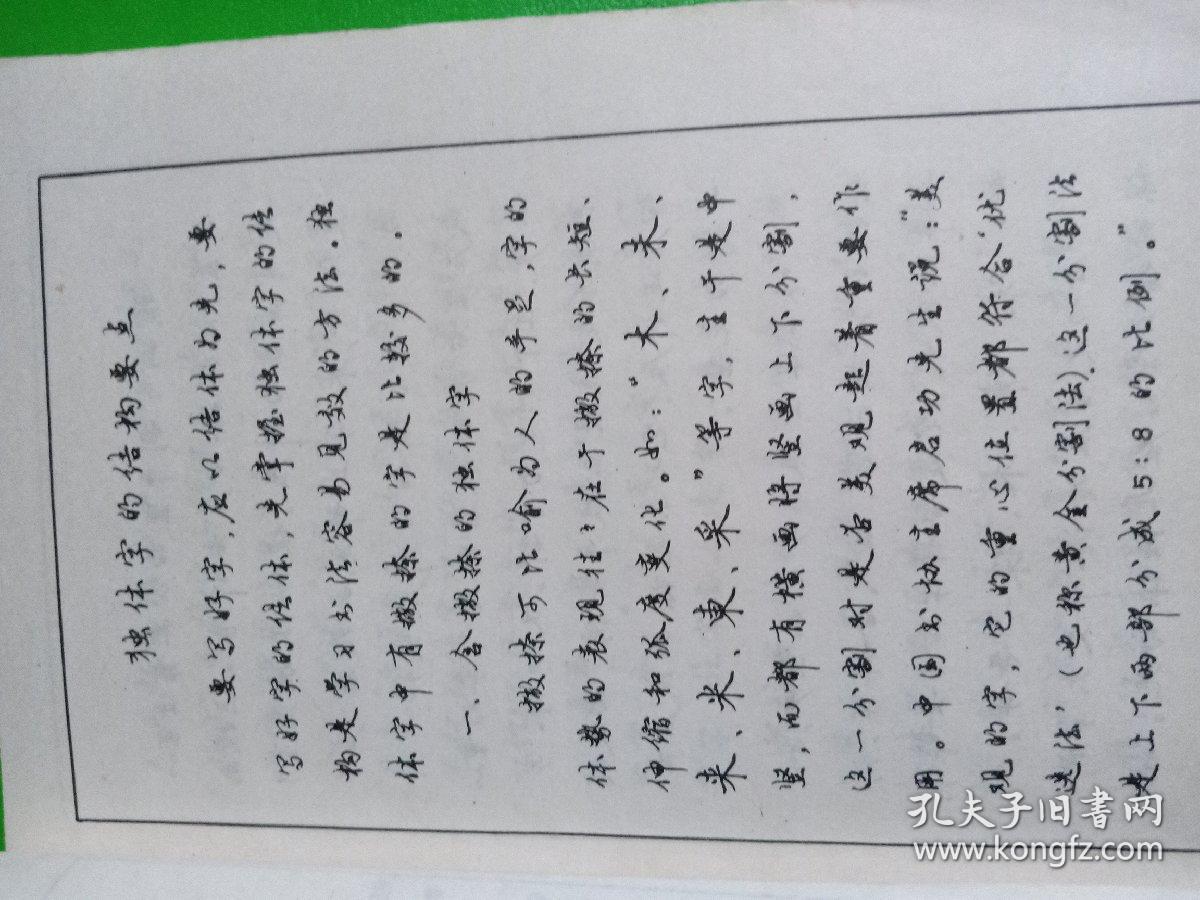 独体字的结构要点
要写好字，应以结体为先，要
写好字的结体，先掌握独体字的结
构是学习书法容易见效的方法。独
体字中有撇捺的字是比较多的。
一、含撇捺的独体字
撇捺可比喻为人的手足，字的
体势的表现往往在于撇捺的长短、
伸缩和弧度变化。如：“木、未、末、
来、米、東、采”等字，主干是中
竖，而都有横画将竖画上下分割，
这一分割对是否美观起着重要作
用。中国书协主席启功先生说：“美
观的字，它的重心位置都符合‘优
选法’（也称黄金分割法）这一分割法
是上下两部分成5:8的比例。”
孔夫子旧书网
www.kongfz.com